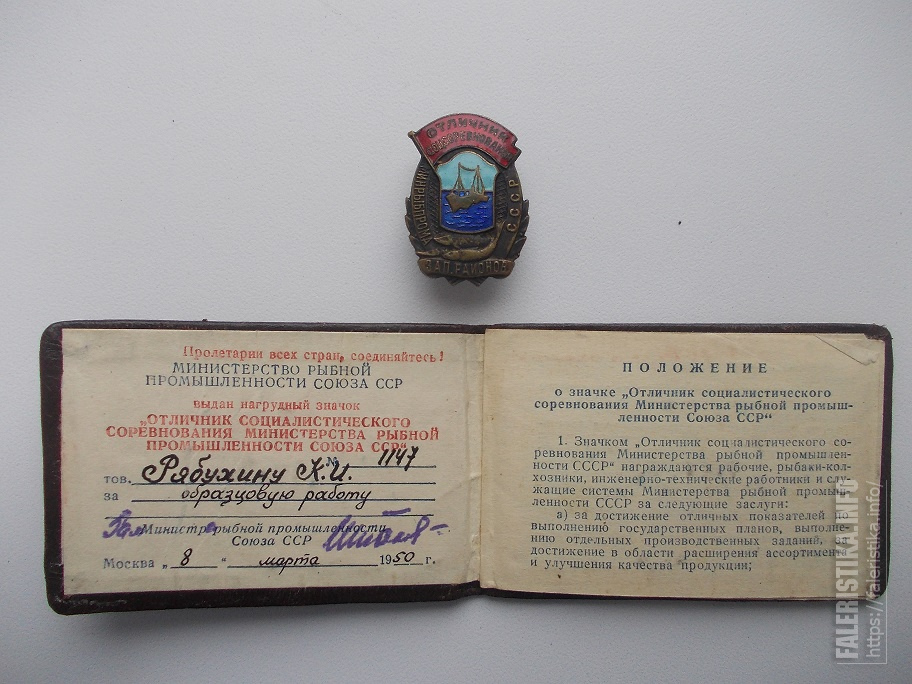 ОТЛИЧНИК
СОЦСОРЕВНОВАНИЯ
МИНРЫБПРОМ
СССР
ЗАП.РАЙОНОВ
Пролетарии всех стран, соединяйтесь!
МИНИСТЕРСТВО РЫБНОЙ
ПРОМЫШЛЕННОСТИ СОЮЗА ССР
выдан нагрудный значок
„ОТЛИЧНИК СОЦИАЛИСТИЧЕСКОГО
СОРЕВНОВАНИЯ МИНИСТЕРСТВА РЫБНОЙ
ПРОМЫШЛЕННОСТИ СОЮЗА ССР“
№ 1147
тов. Рябухину К.И.
за образцовую работу
Министр рыбной промышленности
Союза ССР
Москва „8“ марта 1950 г.
ПОЛОЖЕНИЕ
о значке „Отличник социалистического
соревнования Министерства рыбной промыш-
ленности Союза ССР“
1. Значком „Отличник социалистического со-
ревнования Министерства рыбной промышлен-
ности СССР“ награждаются рабочие, рыбаки-кол-
хозники, инженерно-технические работники и слу-
жащие системы Министерства рыбной промыш-
ленности СССР за следующие заслуги:
а) за достижение отличных показателей по
выполнению государственных планов, выполне-
нию отдельных производственных заданий, за
достижение в области расширения ассортимента
и улучшения качества продукции;
FALERISTIKA.INFO
https://faleristika.info/